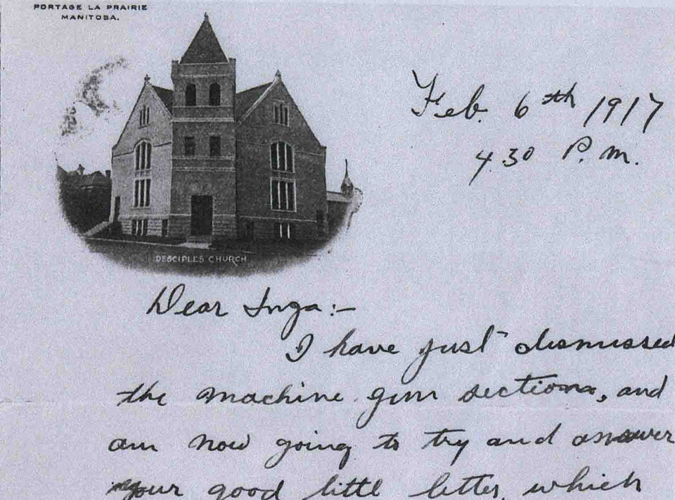 PORTAGE LA PRAIRIE
MANITOBA.
Feb. 6th 1917
4.30 P.m.
DESCIPLES CHURCH
Dear Inga:-
I have just dismissed
the machine gun sections, and
am now going to try and answer
your good little letter, which